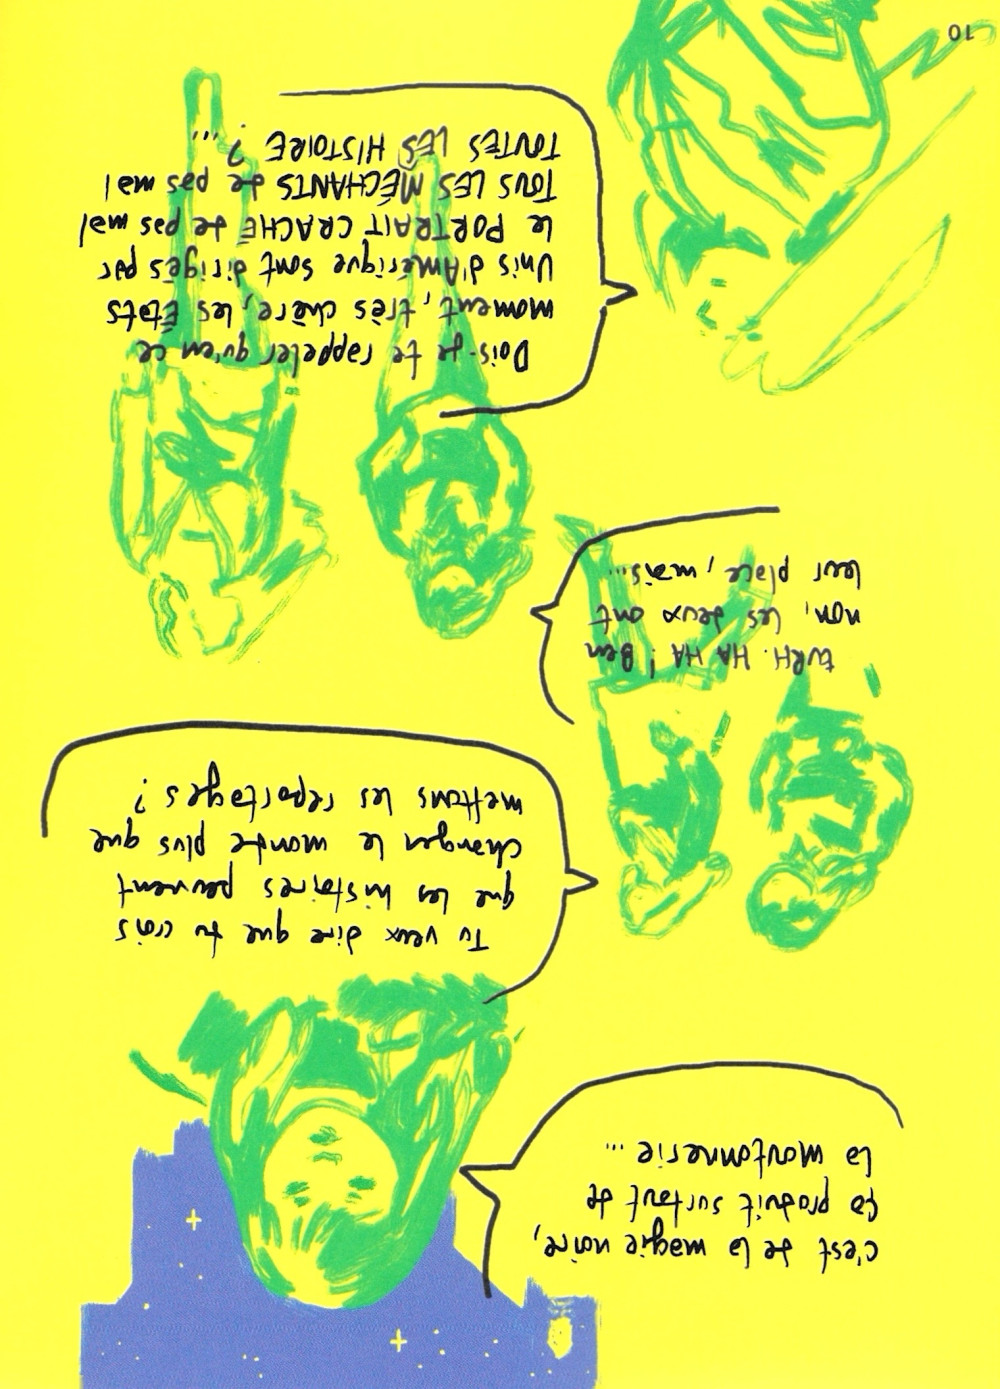 c'est de la magie noire,
ça produit surtout de
la moutonnerie...
Tu veux dire que tu crois
que les histoires peuvent
changer le monde plus que
mettons les reportages ?
EURH. HA HA ! Ben
non, les deux ont
leur place, mais...
Dois-je te rappeler qu'en ce
moment, très chère, les États
Unis d'Amérique sont dirigés par
le PORTRAIT CRACHÉ de pas mal
TOUS LES MÉCHANTS de pas mal
TOUTES LES HISTOIRE ?...
10